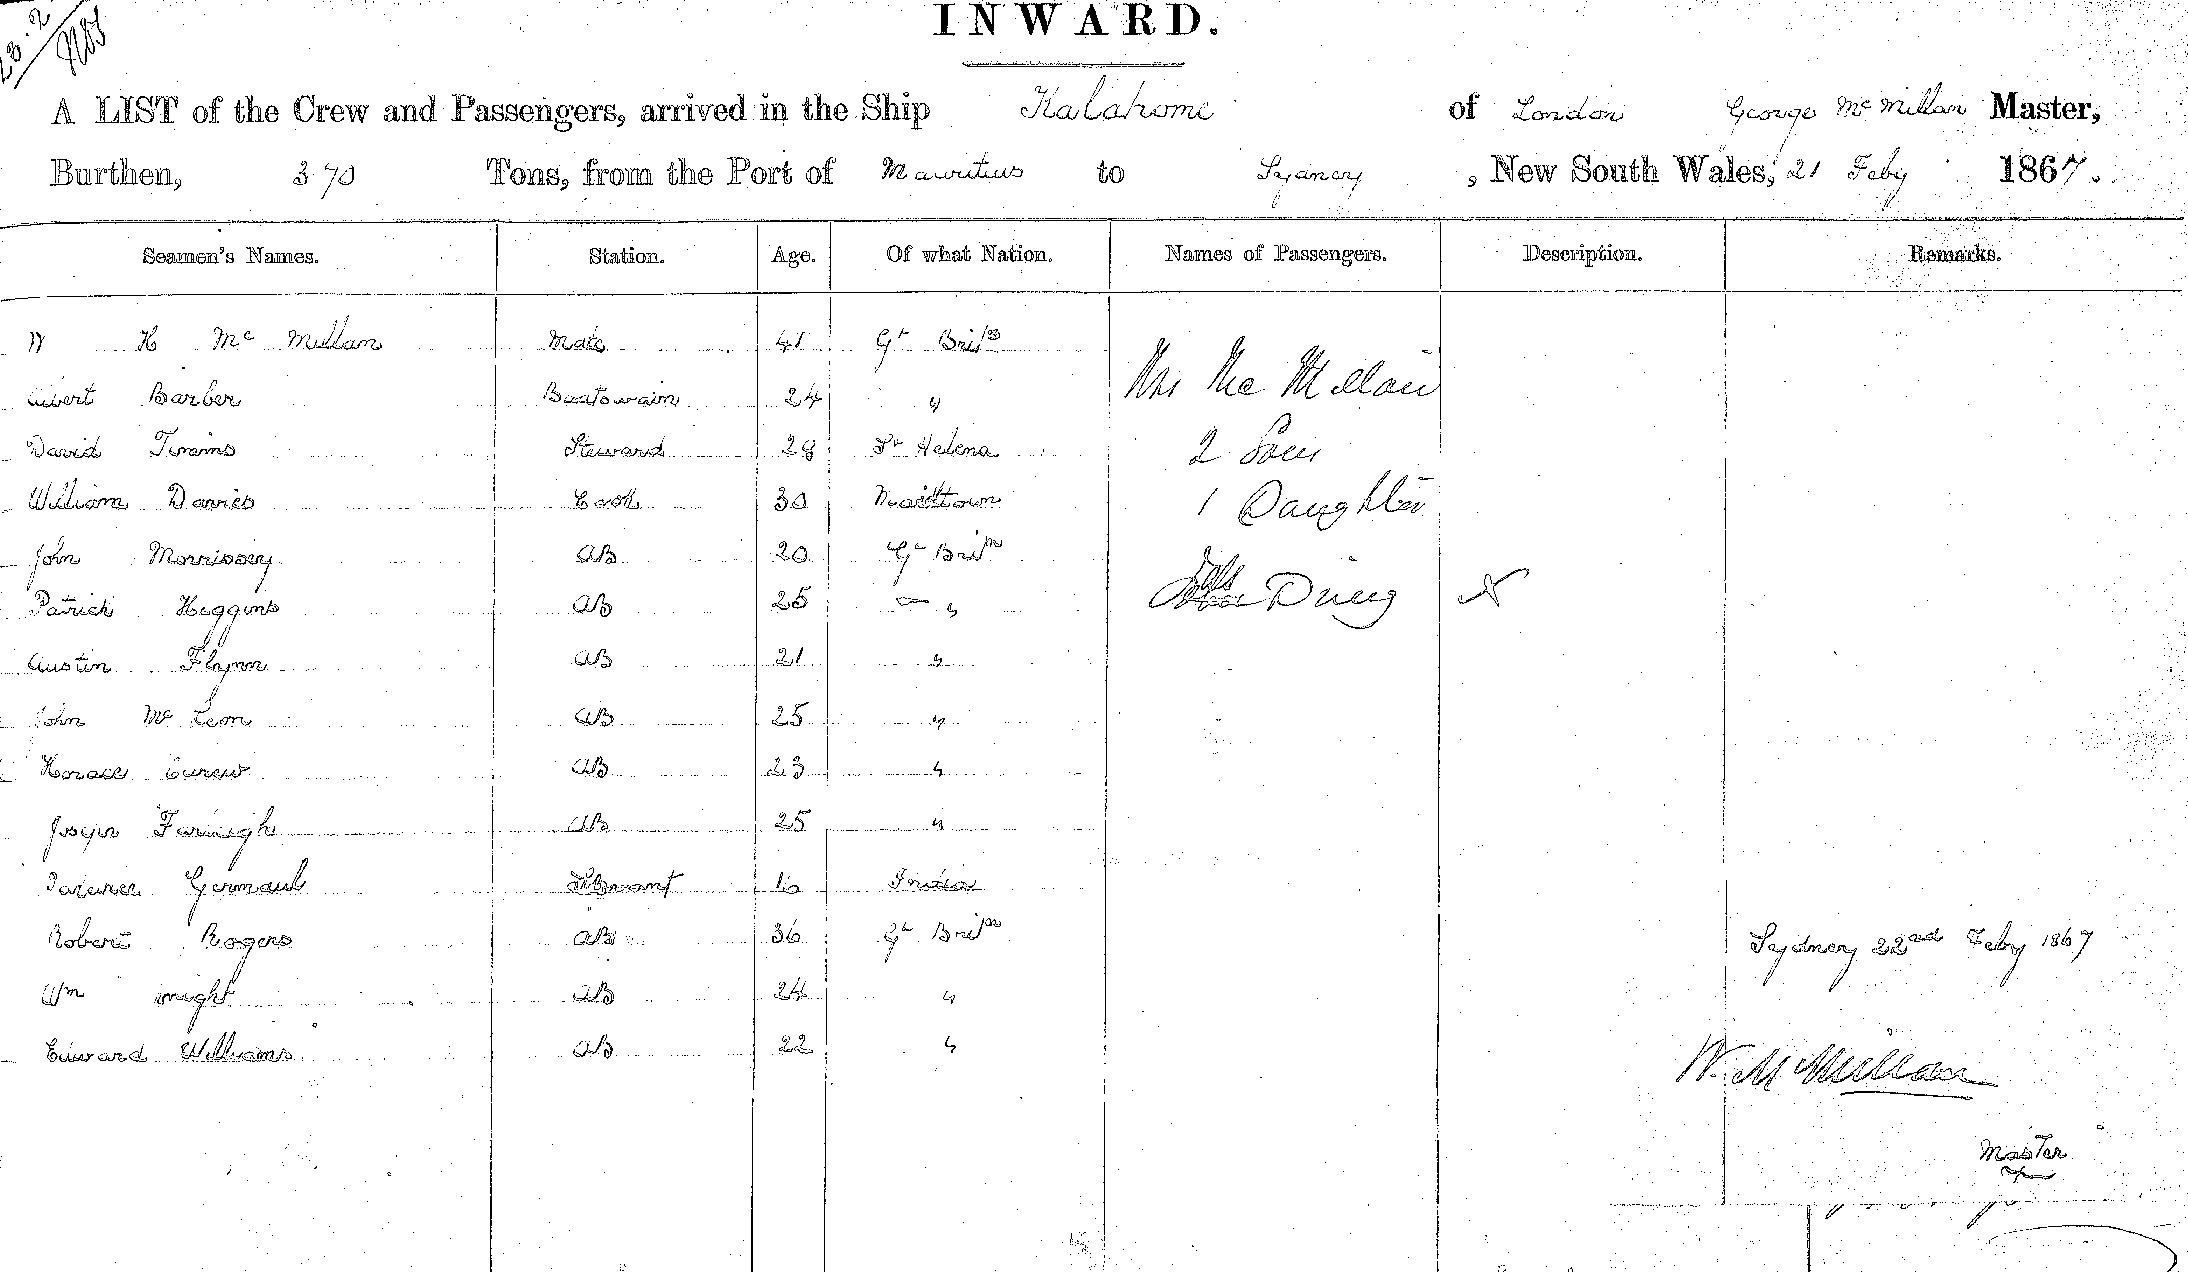 23.2
INWARD.
A LIST of the Crew and Passengers, arrived in the Ship Kalahome of London George Mc Millan Master,
Burthen, 370 Tons, from the Port of Mauritius to Sydney, New South Wales, 21 Feby 1867.
Seamen's Names. Station. Age. Of what Nation. Names of Passengers. Description. Remarks.
W H Mc Millan Mate 41 Gt Britn
Mrs Mc Millan
Albert Barber Boatswain 24 "
David Timms Steward 28 St Helena 2 Sons
William Davies Cook 30 1 Daughter
John Morrissey AB 20 Gt Britn
Patrick Higgins AB 25 " Ding
Austin Flynn AB 21 "
John Mc AB 25 "
Horace Carew AB 23 "
Joseph AB 25 "
Germaul Servant 16 India
Robert Rogers AB 36 Gt Britn Sydney 22nd Feby 1867
Wm Wright AB 24 "
Edward Williams AB 22 "
W. McMillan
Master